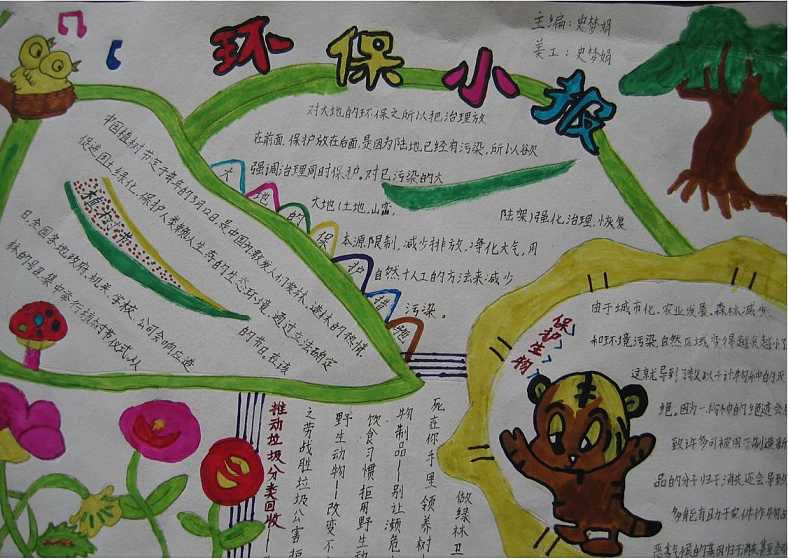 主编：史梦娟
美工：史梦娟
环保小报
对大地的环保之所以把治理放
在前面，保护放在后面，是因为陆地已经有污染，所以欲
强调治理同时保护，对已污染的大
大地（土地、山峦、
陆架）强化治理，恢复
本源限制，减少排放，净化大气，用
自然十人工的方法来减少
污染。
大地的保护措施
植树节
中国植树节定于每年的3月12日，是由国
促进国土绿化，保护人类赖
的生态环境，通过立法确定
的节日，在该
日，全国各地政府、机关、学校、公司会响应造
林的号召，集中举行植树节仪式，从
保护生物
由于城市化、农业发展、森林减少
和环境污染，自然区域变得越来越小了
这就导致了数以千计物种的灭
绝。因为一些物种的绝迹会
致许多可被用于制造新
品的分子归于消失，还会导致
多能有助于农作物
推动垃圾分类回收
之劳战胜垃圾公害
野生动物—改变不
饮食习惯 拒用野生动
物制品—别让濒危
死在你手里 领养树
做绿林卫